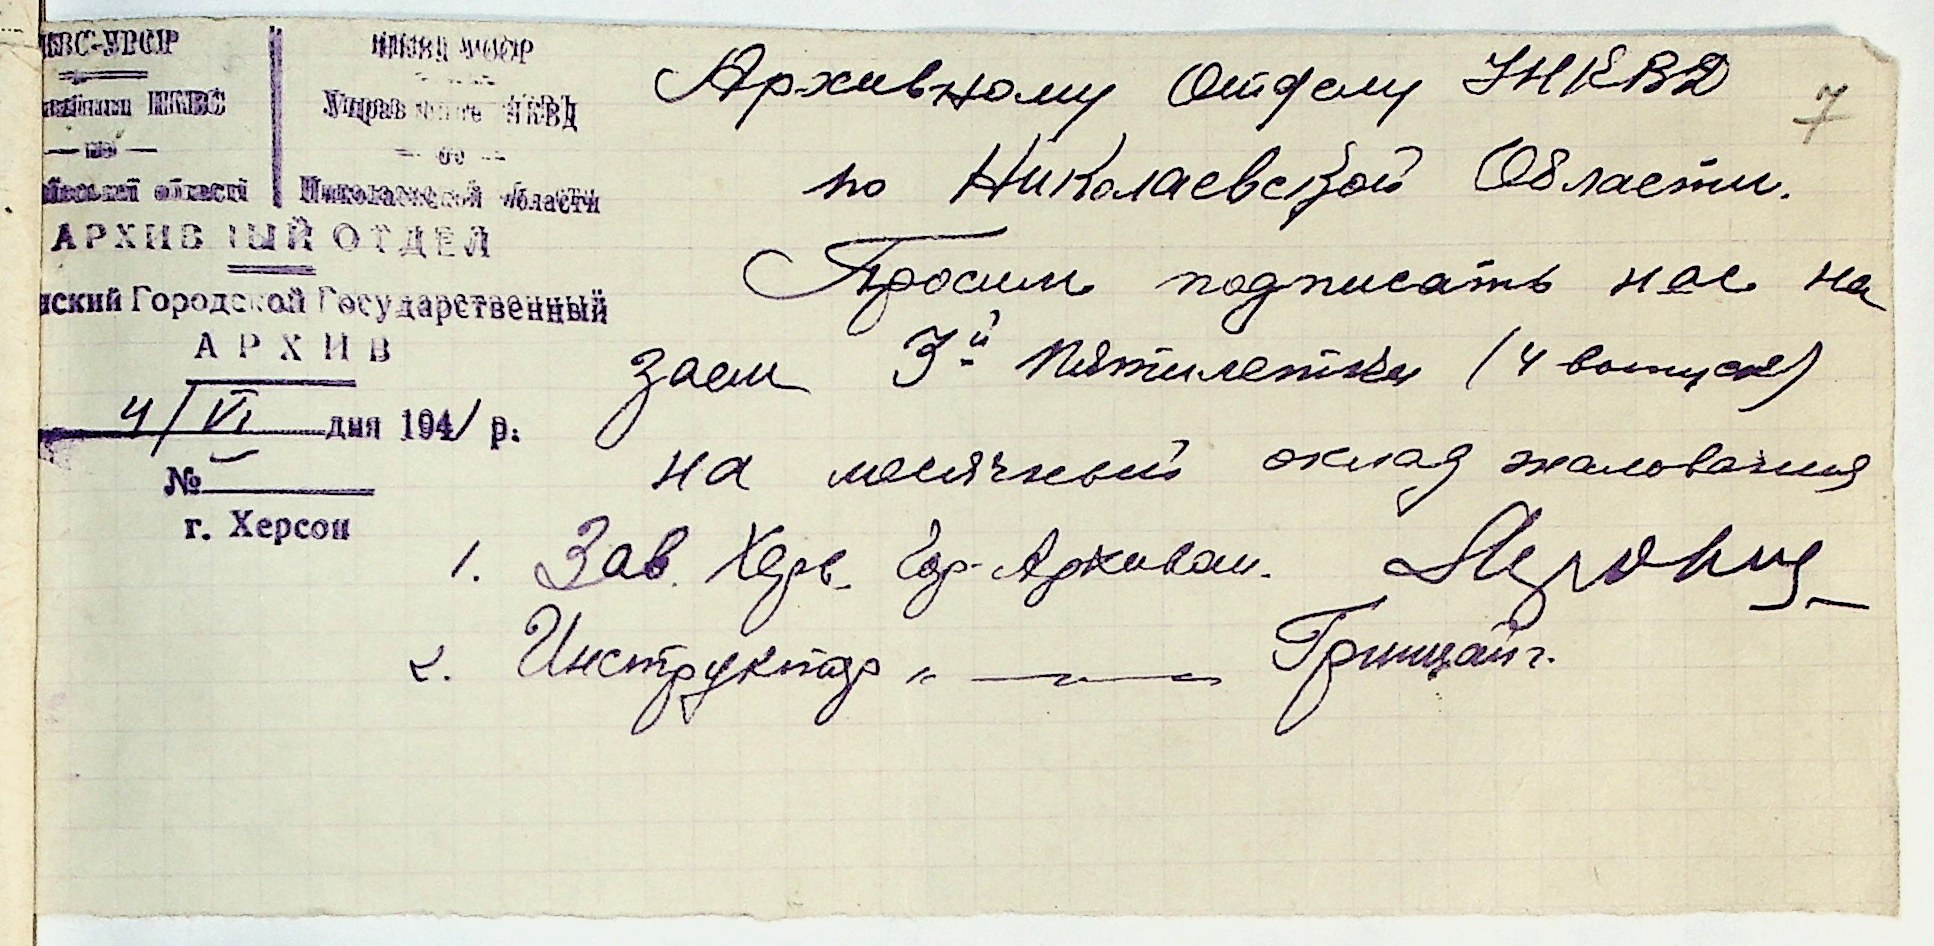 НКВС-УРСР
НКВД УССР
НКВС
Управление НКВД
— по —
— по —
області
Николаевской области
АРХИВНЫЙ ОТДЕЛ
нский Городской Государственный
АРХИВ
4/VI дня 1941 р.
№
г. Херсон
7
Архивному Отделу УНКВД
по Николаевской Области.
Просим подписать нас на
заем 3й пятилетки (4 выпуск)
на месячный оклад жалования
1. Зав. Херс. Гор-Архивом.
2. Инструктор " — " — Грицай